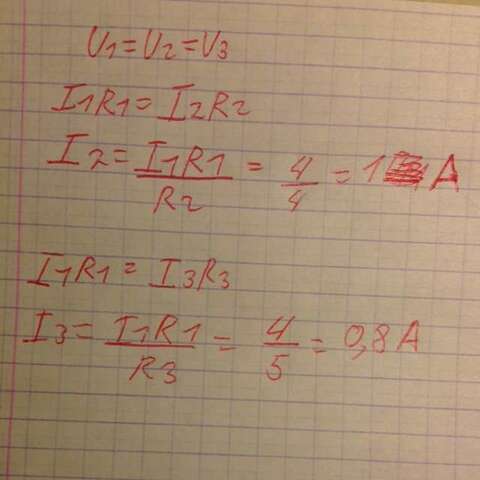 U1=U2=U3
I1R1=I2R2
I2=I1R1/R2=4/4=1A
I1R1=I3R3
I3=I1R1/R3=4/5=0,8A